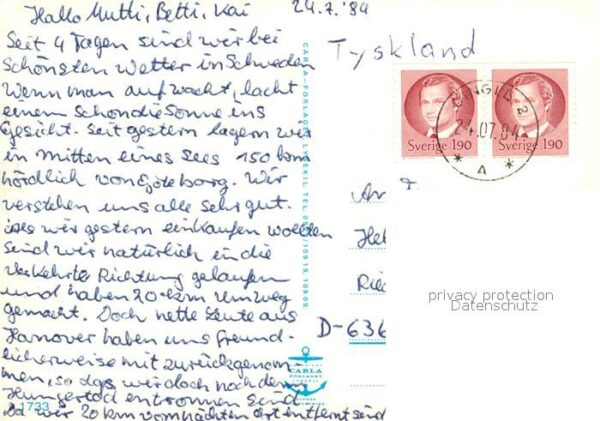 Hallo Mutti, Betti, Kai
24.7.'84
Seit 4 Tagen sind wir bei
schönsten Wetter in Schweden
Wenn man aufwacht, lacht
einem schon die Sonne ins
Gesicht. Seit gestern lagern wir
in mitten eines Sees 150 km
nördlich von Göteborg. Wir
verstehen uns alle sehr gut.
Als wir gestern einkaufen wollten
sind wir natürlich in die
verkehrte Richtung gelaufen
und haben 20 km Umweg
gemacht. Doch nette Leute aus
Hanover haben uns freund-
licherweise mit zurückgenom-
men, so dass wir doch noch dem
Hungertod entronnen sind
Da wir 20 km vom nächsten Ort entfernt sind
1733
CARLA-FÖRLAGET LYSEKIL. TEL. 10919, 10909.
CARLA
FÖRLAGET
LYSEKIL
Tyskland
Sverige 190
Sverige 190
24.07.84
A
An
Hel
Ried
D-636
privacy protection
Datenschutz